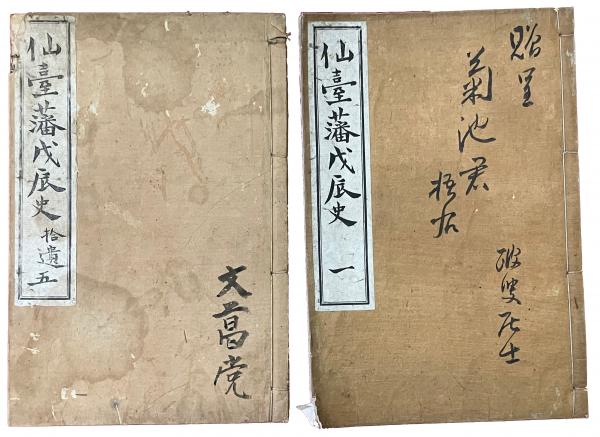 贈呈
菊池君 梧右
叟居士
仙臺藩戊辰史 一
文昌党
仙臺藩戊辰史 拾遺五